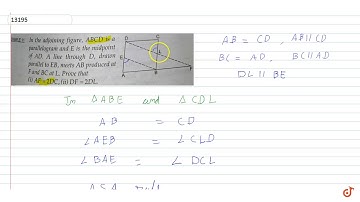 13195
In the adjoining figure, ABCD is a
parallelogram and E is the midpoint
of AD. A line through D, drawn
parallel to EB, meets AB produced at
F and BC at L. Prove that
(i) AF = 2DC, (ii) DF = 2DL.
D C
E L
A B F
AB = CD , AB || CD
BC = AD, BC || AD
DL || BE
In △ABE and △CDL
AB = CD
∠AEB = ∠CLD
∠BAE = ∠DCL